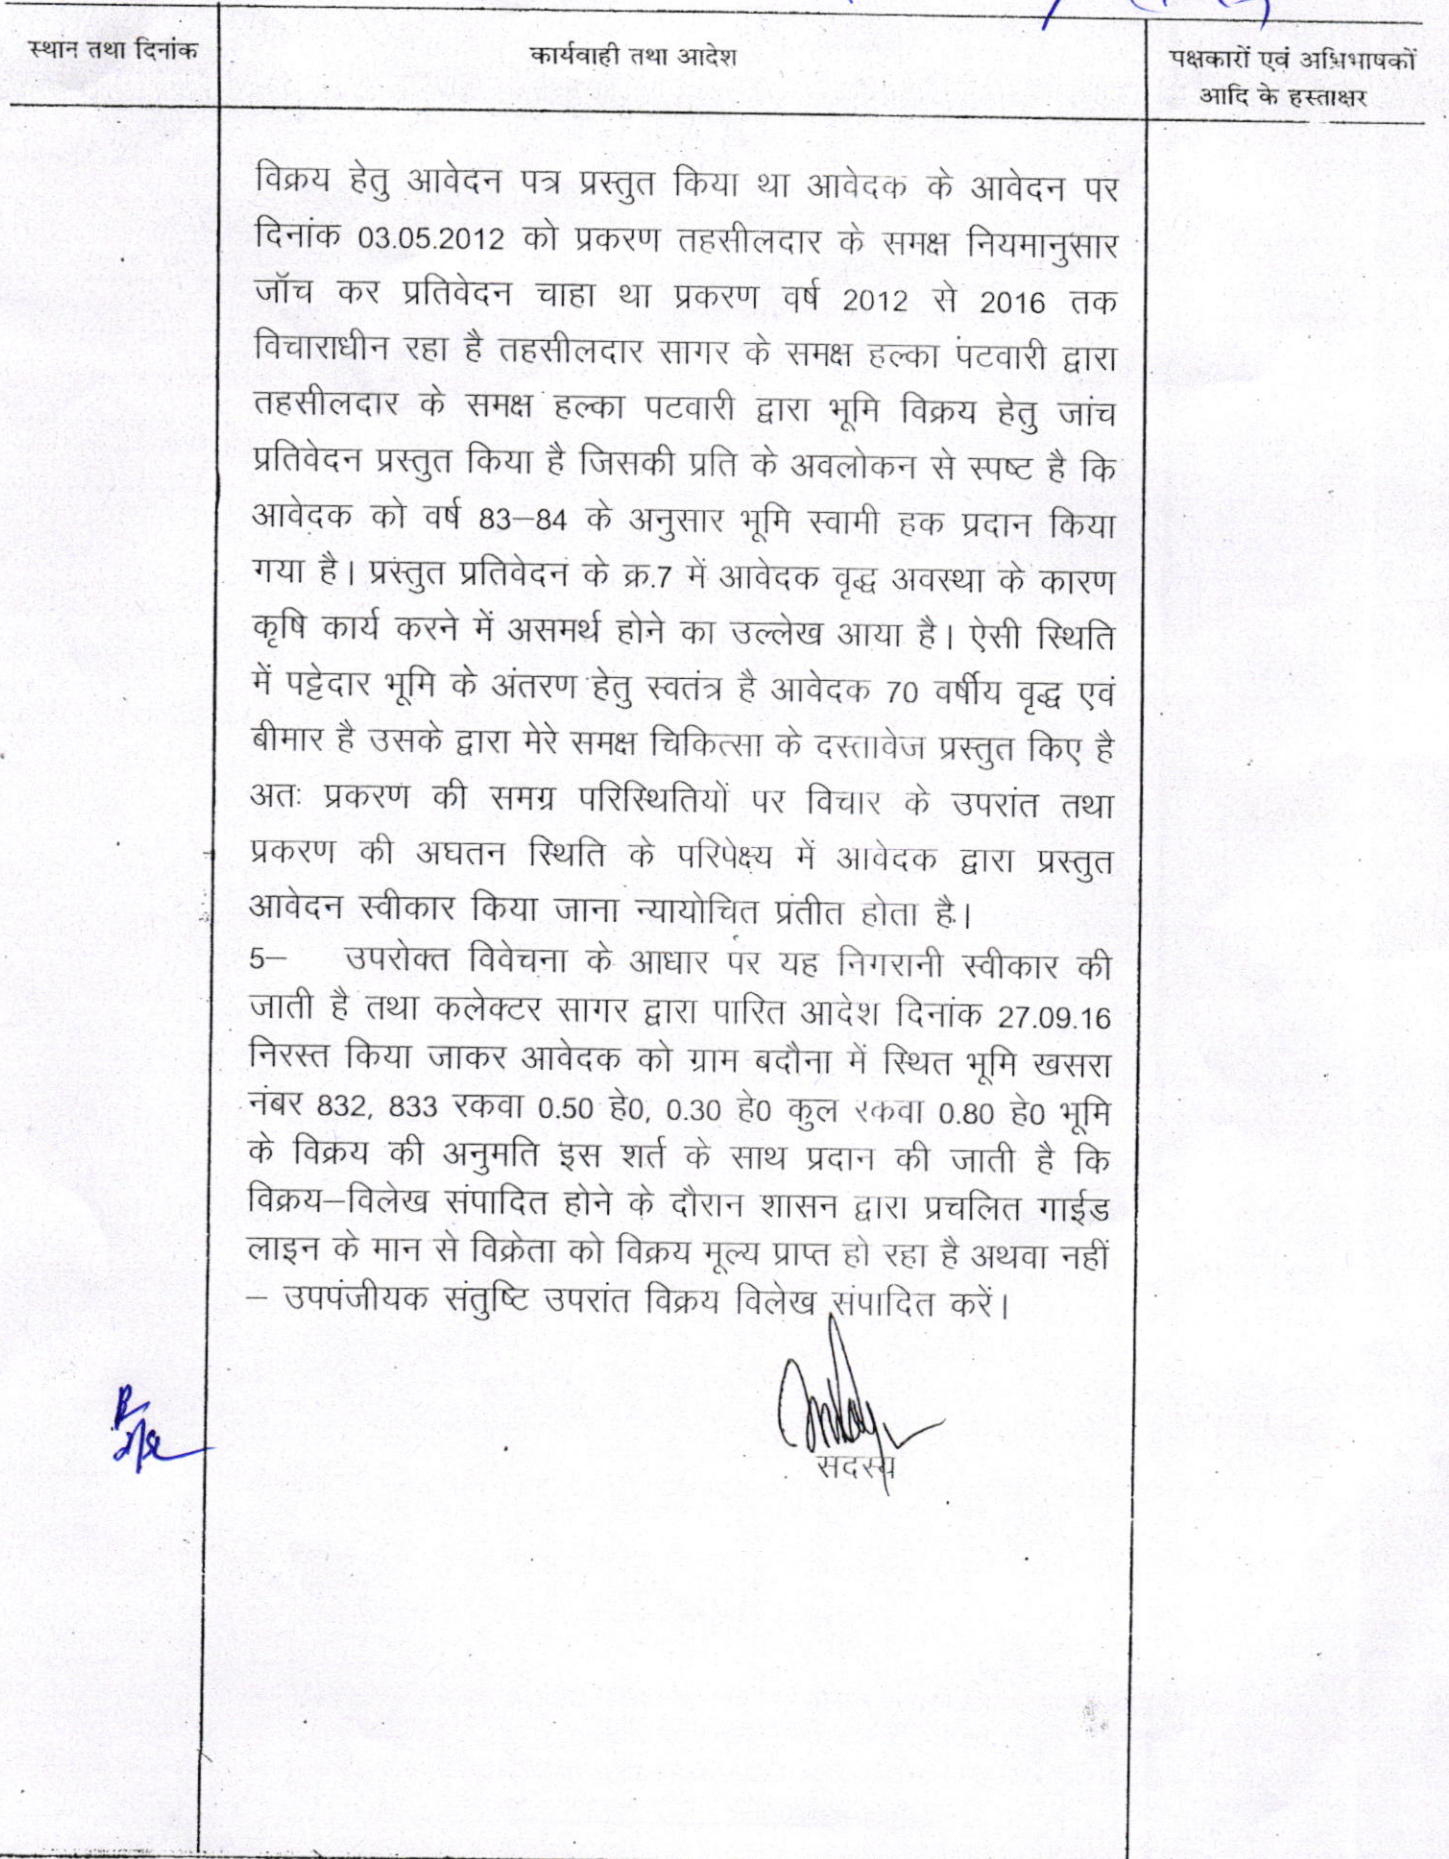 स्थान तथा दिनांक
कार्यवाही तथा आदेश
पक्षकारों एवं अभिभाषकों
आदि के हस्ताक्षर
विक्रय हेतु आवेदन पत्र प्रस्तुत किया था आवेदक के आवेदन पर
दिनांक 03.05.2012 को प्रकरण तहसीलदार के समक्ष नियमानुसार
जॉच कर प्रतिवेदन चाहा था प्रकरण वर्ष 2012 से 2016 तक
विचाराधीन रहा है तहसीलदार सागर के समक्ष हल्का पटवारी द्वारा
तहसीलदार के समक्ष हल्का पटवारी द्वारा भूमि विक्रय हेतु जांच
प्रतिवेदन प्रस्तुत किया है जिसकी प्रति के अवलोकन से स्पष्ट है कि
आवेदक को वर्ष 83–84 के अनुसार भूमि स्वामी हक प्रदान किया
गया है। प्रस्तुत प्रतिवेदन के क्र.7 में आवेदक वृद्ध अवस्था के कारण
कृषि कार्य करने में असमर्थ होने का उल्लेख आया है। ऐसी स्थिति
में पट्टेदार भूमि के अंतरण हेतु स्वतंत्र है आवेदक 70 वर्षीय वृद्ध एवं
बीमार है उसके द्वारा मेरे समक्ष चिकित्सा के दस्तावेज प्रस्तुत किए है
अतः प्रकरण की समग्र परिस्थितियों पर विचार के उपरांत तथा
प्रकरण की अघतन स्थिति के परिपेक्ष्य में आवेदक द्वारा प्रस्तुत
आवेदन स्वीकार किया जाना न्यायोचित प्रतीत होता है।
5– उपरोक्त विवेचना के आधार पर यह निगरानी स्वीकार की
जाती है तथा कलेक्टर सागर द्वारा पारित आदेश दिनांक 27.09.16
निरस्त किया जाकर आवेदक को ग्राम बदौना में स्थित भूमि खसरा
नंबर 832, 833 रकवा 0.50 हे0, 0.30 हे0 कुल रकवा 0.80 हे0 भूमि
के विक्रय की अनुमति इस शर्त के साथ प्रदान की जाती है कि
विक्रय–विलेख संपादित होने के दौरान शासन द्वारा प्रचलित गाईड
लाइन के मान से विक्रेता को विक्रय मूल्य प्राप्त हो रहा है अथवा नहीं
– उपपंजीयक संतुष्टि उपरांत विक्रय विलेख संपादित करें।
सदस्य